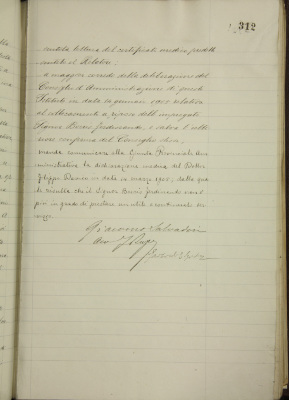 312
sentita lettura del certificato medico predetto
sentito il Relatore
a maggior corredo della deliberazione del
Consiglio d'Amministrazione di questo
Istituto in data 12 gennaio 1905 relativa
al collocamento a riposo dell'impiegato
Signor Ferdinando, e salva l'ulte
riore conferma del Consiglio stesso,
manda comunicare alla Giunta Provinciale Am
ministrativa la dichiarazione medica del Dottor
Filippo in data 14 marzo 1905, dalla qua
le risulta che il Signor Ferdinando non è
più in grado di prestare un utile e continuato ser
vizio.
Giacomo Salvadori
Avv.